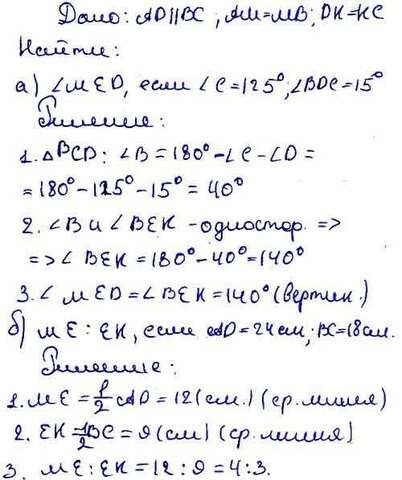 Дано: AD||BC; AM=MB; DK=KC
Найти:
а) ∠MED, если ∠C=125°; ∠BDC=15°
Решение:
1. △BCD: ∠B=180°-∠C-∠D=
=180°-125°-15°=40°
2. ∠B и ∠BEK -одностор. =>
=>∠BEK=180°-40°=140°
3. ∠MED=∠BEK=140° (вертик.)
б) ME:EK, если AD=24см; BC=18см.
Решение:
1. ME=1/2AD=12(см.) (ср.линия)
2. EK=1/2BC=9(см) (ср.линия)
3. ME:EK=12:9=4:3.